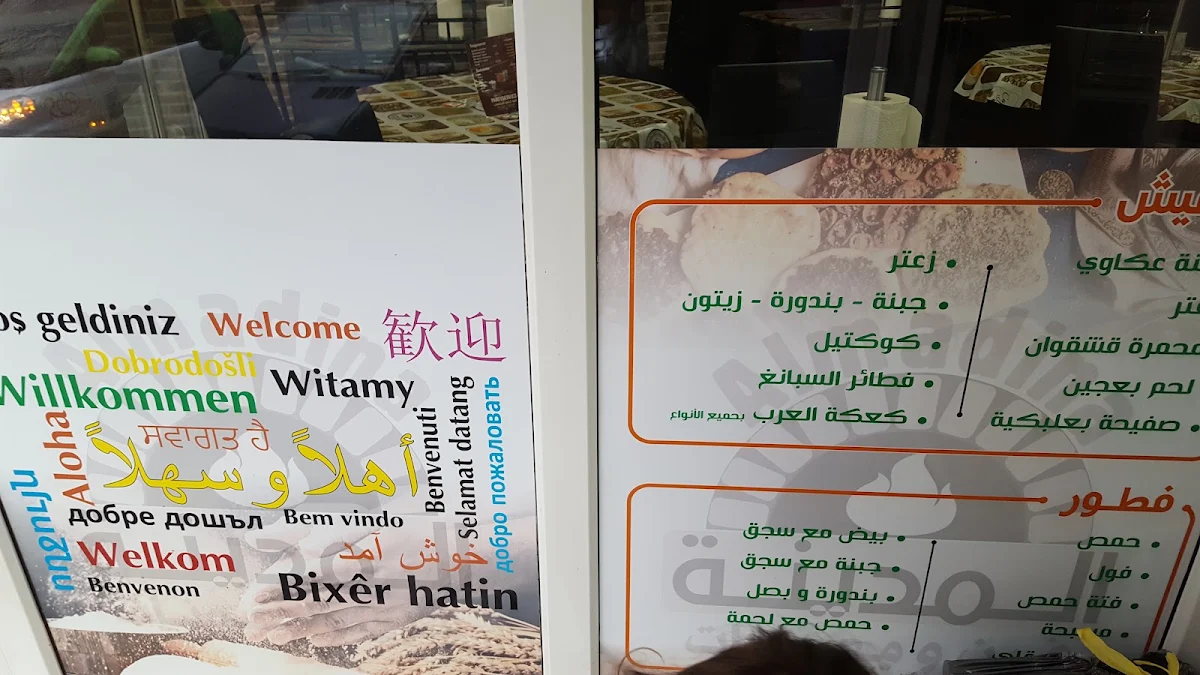 oş geldiniz
Welcome
歓迎
Dobrodošli
Willkommen
Witamy
Aloha
ਸਵਾਗਤ ਹੈ
أهلاً و سهلاً
Benvenuti
Selamat datang
добро пожаловать
ողջույն
добре дошъл
Bem vindo
Welkom
خوش آمد
Benvenon
Bixêr hatin
زعتر
جبنة - بندورة - زيتون
كوكتيل
فطائر السبانغ
كعكة العرب بحميع الأنواع
عكاوي
محمرة قشقوان
لحم بعجين
صفيحة بعلبكية
فطور
حمص
فول
فتة حمص
بيض مع سجق
جبنة مع سجق
بندورة و بصل
حمص مع لحمة
المدينة